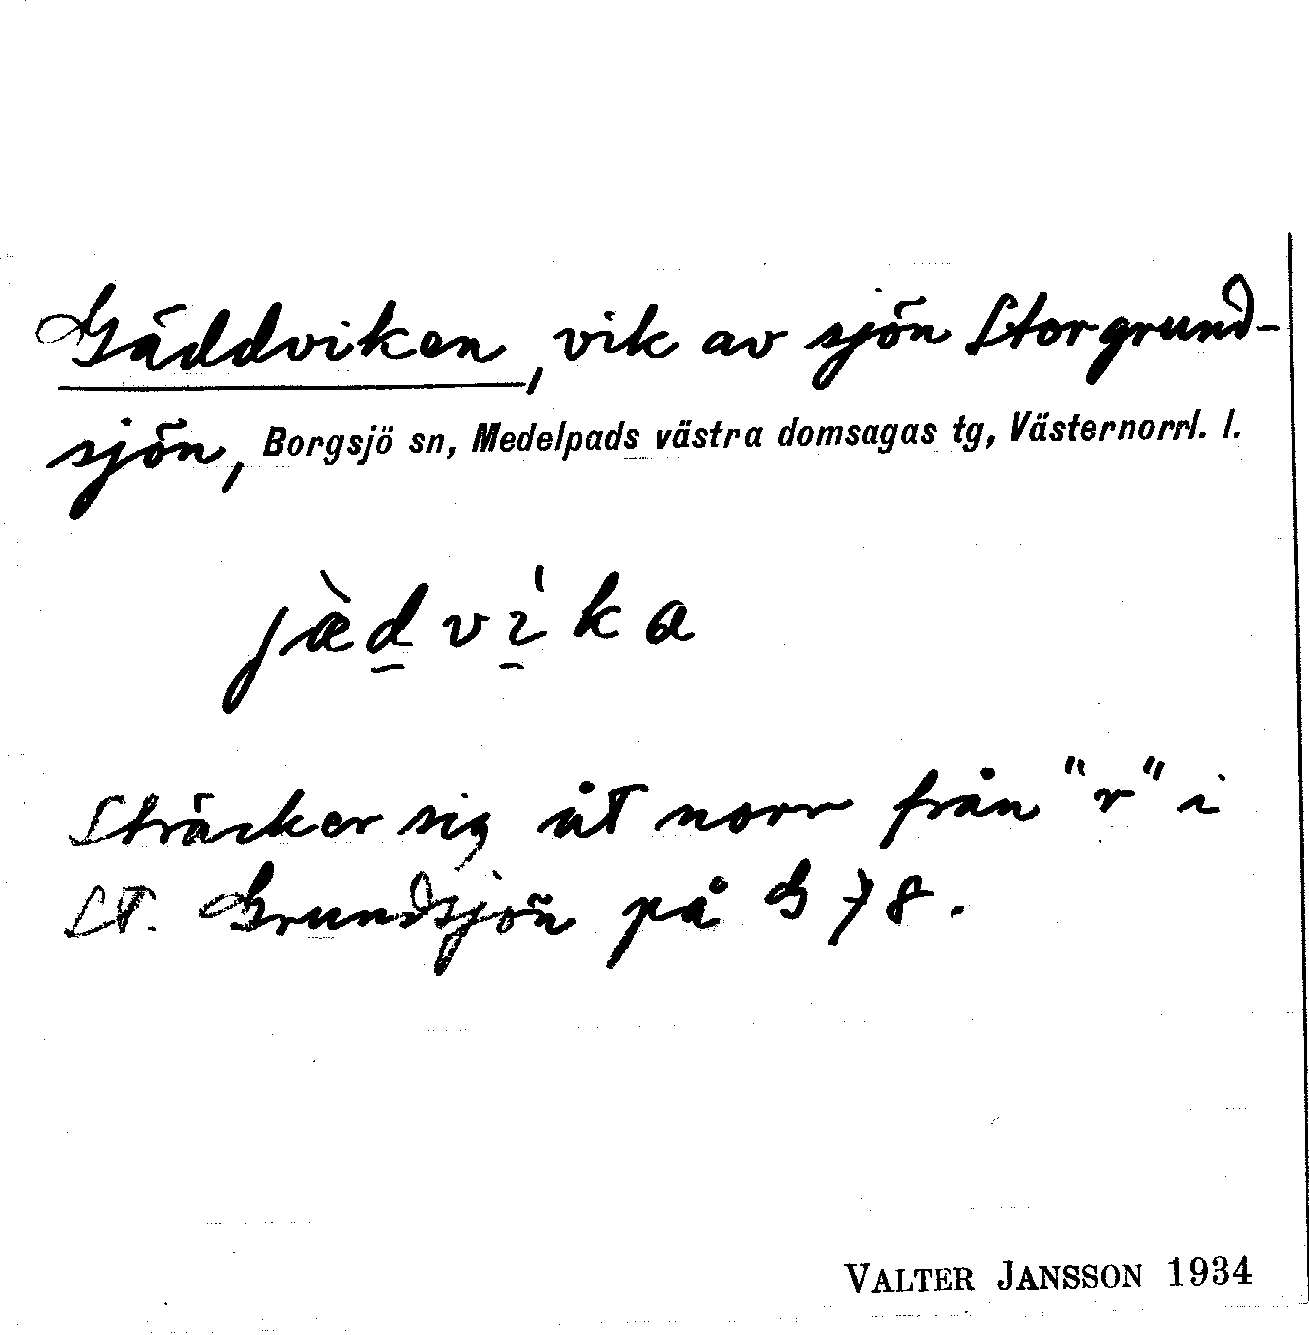 Gäddviken, vik av sjön Storgrund-
sjön, Borgsjö sn, Medelpads västra domsagas tg, Västernorrl. l.
jæ̀d̲vi̲̍ka
Sträcker sig åt norr från "r" i
St. Grundsjön på G 78.
VALTER JANSSON 1934